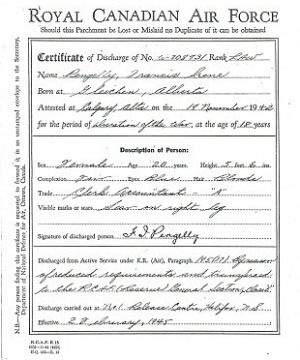 ROYAL CANADIAN AIR FORCE
Should this Parchment be Lost or Mislaid no Duplicate of it can be obtained
Certificate of Discharge of No. W-308931 Rank LAW
Name Pengelly, Francis Irene
Born at Gleichen, Alberta
Attested at Calgary Alta on the 19 November 1942
for the period of Duration of the War, at the age of 18 years
Description of Person:
Sex Female Age 20 years Height 5 feet 6 in.
Complexion Fair Eyes Blue Hair Blonde
Trade Clerk Accountant - "A"
Visible marks or scars Scar on right leg
Signature of discharged person F. I. Pengelly
Discharged from Active Service under K.R. (Air), Paragraph
of reduced requirements and transferred
to the R.C.A.F. (Reserve) General Section, Class
Discharge carried out at No.1 Release Centre, Halifax, N.S.
Effective February, 1945
N.B.—Any person finding this certificate is requested to forward it in an unstamped envelope to the Secretary, Department of National Defence for Air, Ottawa, Canada.